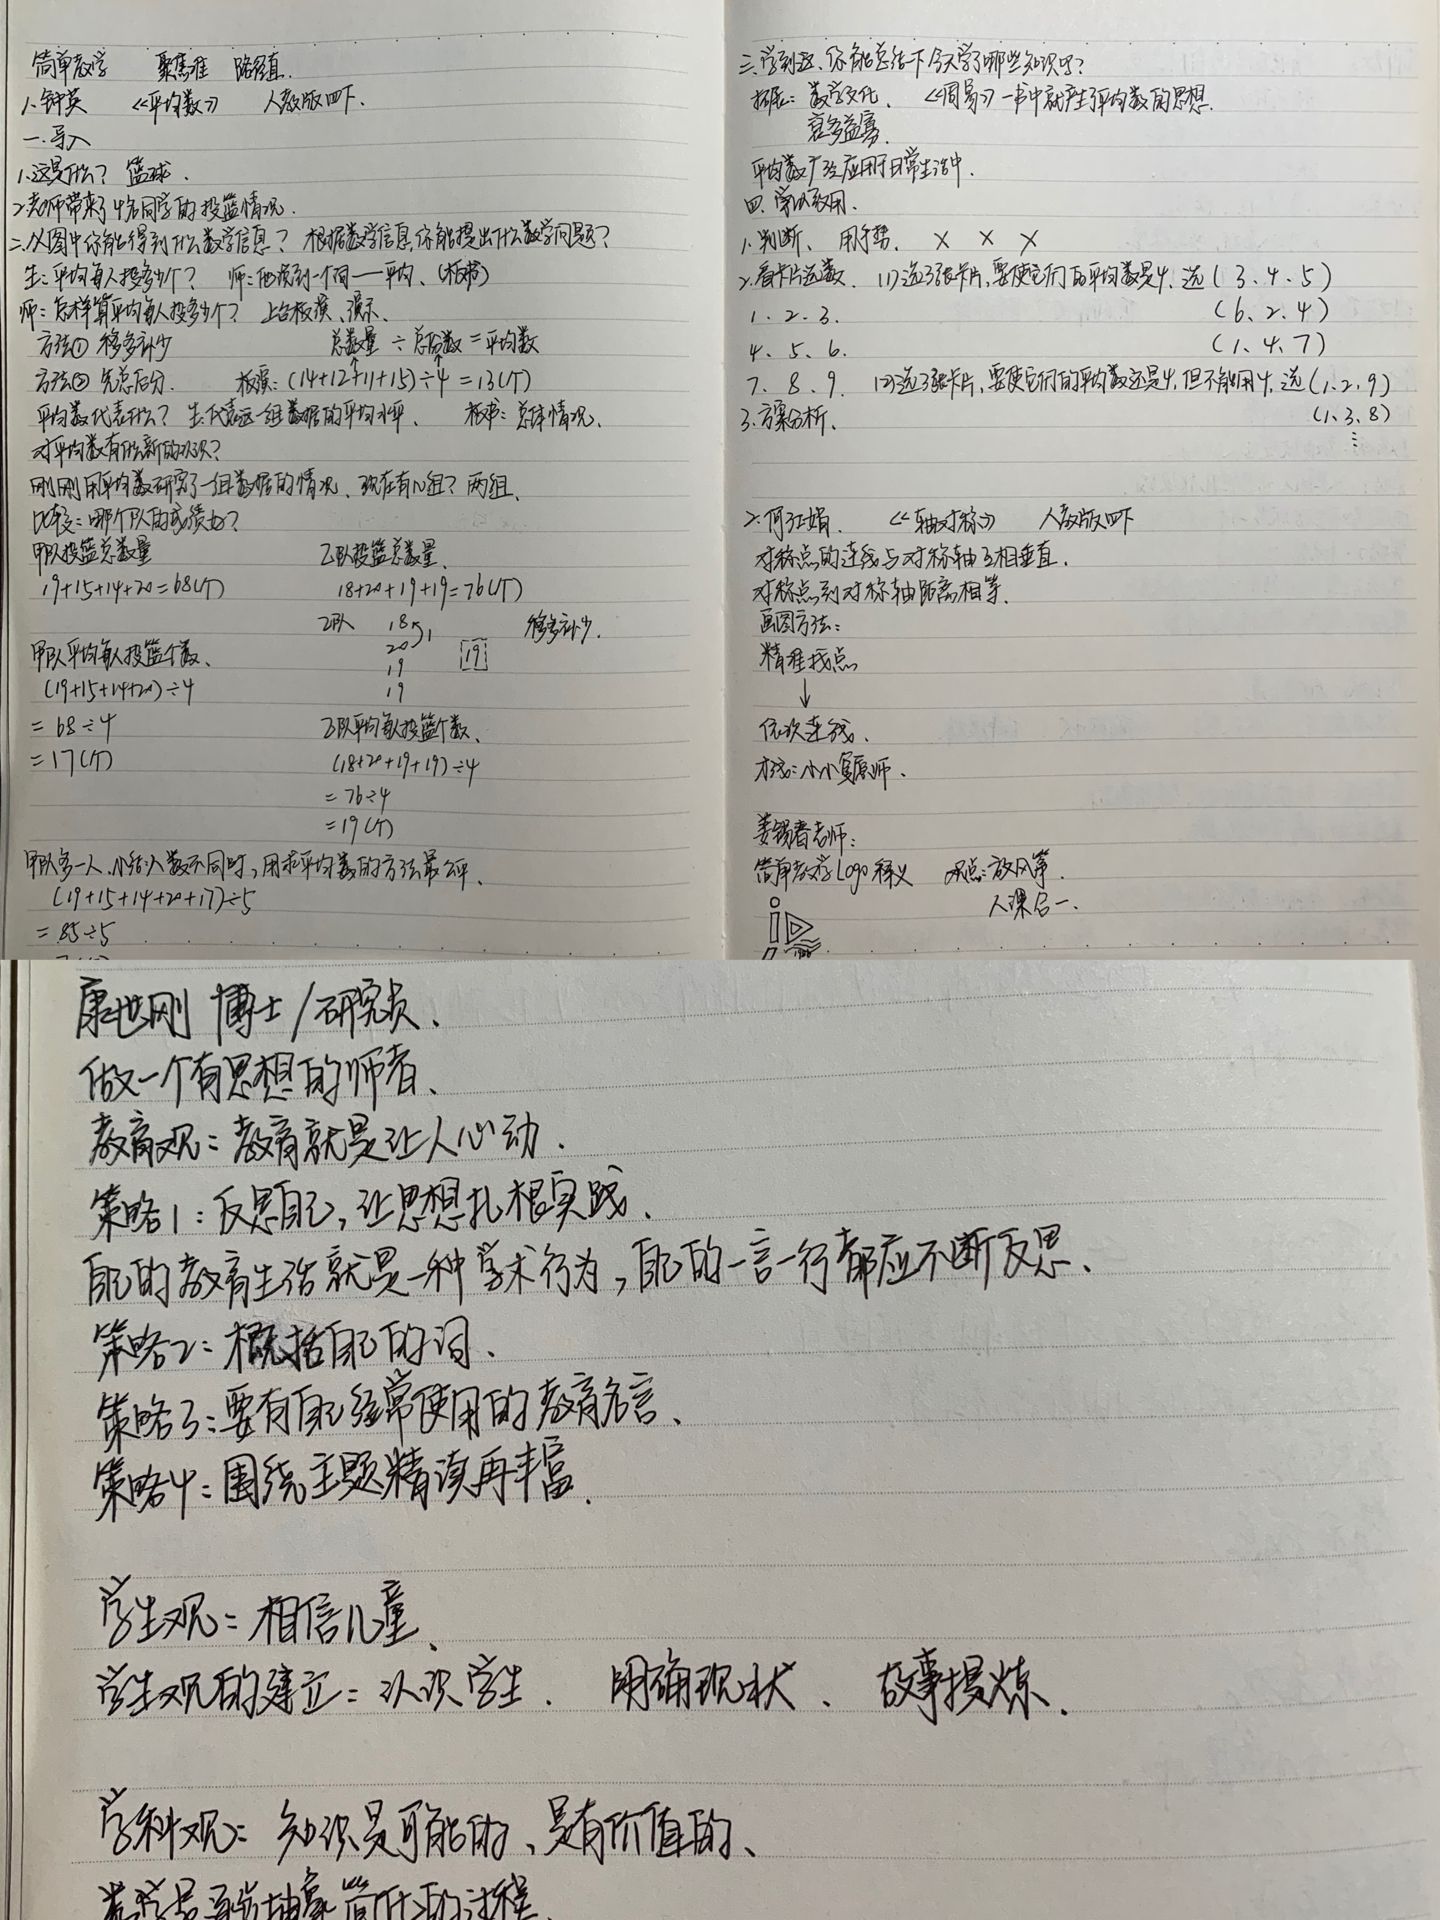 简单教学 聚焦准 路径直.
1.钟英 《平均数》 人教版四下.
一.导入
1.这是什么? 篮球.
2.老师带来了4名同学的投篮情况.
二.从图中你能得到什么数学信息? 根据数学信息,你能提出什么数学问题?
生:平均每人投多少个? 师:他读到一个词——平均.(板书)
师:怎样算平均每人投多少个? 上台板演、演示.
方法① 移多补少 总数量÷总份数=平均数
方法② 先总后分. 板演:(14+12+11+15)÷4=13(个)
平均数代表什么? 生:代表这一组数据的平均水平. 板书:总体情况.
对平均数有什么新的认识?
刚刚用平均数研究了一组数据的情况、现在有几组? 两组.
比较:哪个队的成绩好?
甲队投篮总数量 乙队投篮总数量.
19+15+14+20=68(个) 18+20+19+19=76(个)
乙队 18 移多补少.
20 1 19
19
19
甲队平均每人投篮个数.
(19+15+14+20)÷4
=68÷4 乙队平均每人投篮个数.
=17(个) (18+20+19+19)÷4
=76÷4
=19(个)
甲队多一人.小结:人数不同时,用求平均数的方法最公平.
(19+15+14+20+17)÷5
=85÷5
三.学到这,你能总结一下今天学了哪些知识吗?
拓展:数学文化. 《周易》一书中就产生了平均数的思想.
裒多益寡.
平均数广泛应用于日常生活中.
四.学以致用.
1.判断、用手势. × × ×
2.看卡片选数. (1)选3张卡片,要使它们的平均数是4,选(3、4、5)
1、2、3. (6、2、4)
4、5、6. (1、4、7)
7、8、9. (2)选3张卡片,要使它们的平均数还是4,但不能用4,选(1、2、9)
3.方案分析. (1、3、8)
⋮
2.何江娟. 《轴对称》 人教版四下
对称点的连线与对称轴互相垂直.
对称点到对称轴距离相等.
画图方法:
精准找点
↓
依次连线.
小小复原师.
姜锡春老师:
简单教学logo释义 观点:放风筝.
人课合一.
康世刚 博士/研究员.
做一个有思想的师者.
教育观:教育就是让人心动.
策略1:反思自己,让思想扎根实践.
自己的教育生活就是一种学术行为,自己的一言一行都应不断反思.
策略2:概括自己的词.
策略3:要有自己经常使用的教育名言.
策略4:围绕主题精读再丰富.
学生观:相信儿童.
学生观的建立:认识学生. 明确现状、故事提炼.
学科观:知识是可能的、是有价值的、